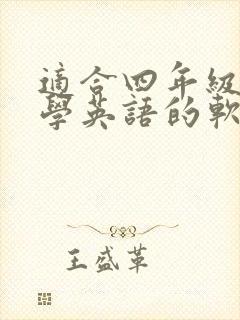 適合四年級
學英語的軟
王盛革